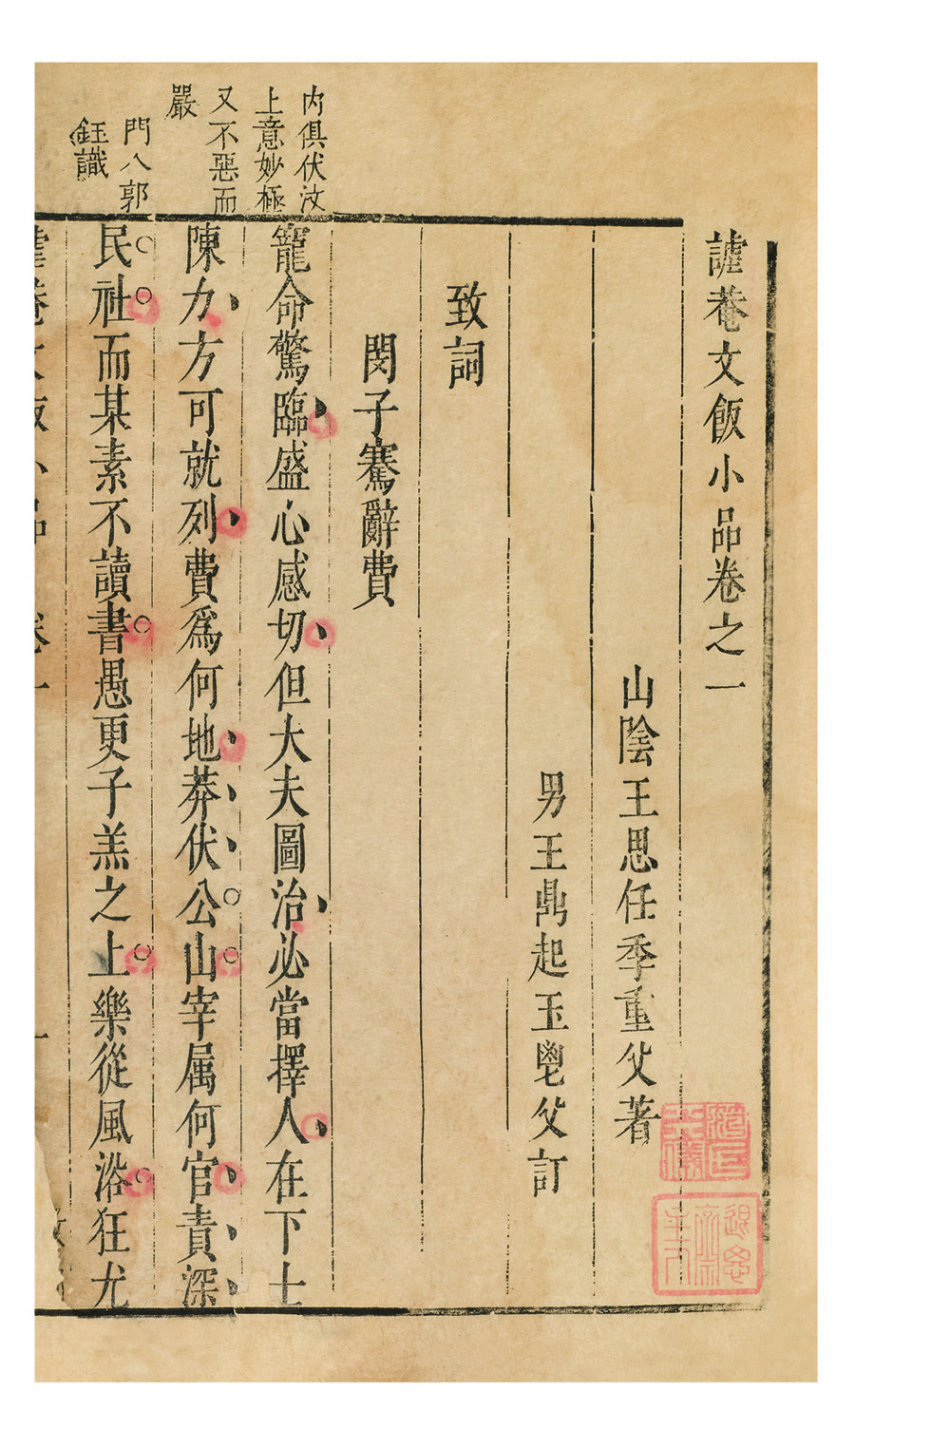 謔菴文飯小品卷之一
山陰王思任季重父著
男王鼎起玉鬯父訂
致詞
閔子騫辭費
寵命驚臨盛心感切但大夫圖治必當擇人在下士
陳力方可就列費爲何地莽伏公山宰属何官責深
民社而某素不讀書愚更子羔之上樂從風浴狂尤
内俱伏汶
上意妙極
又不惡而
嚴
門人郭
鈺識